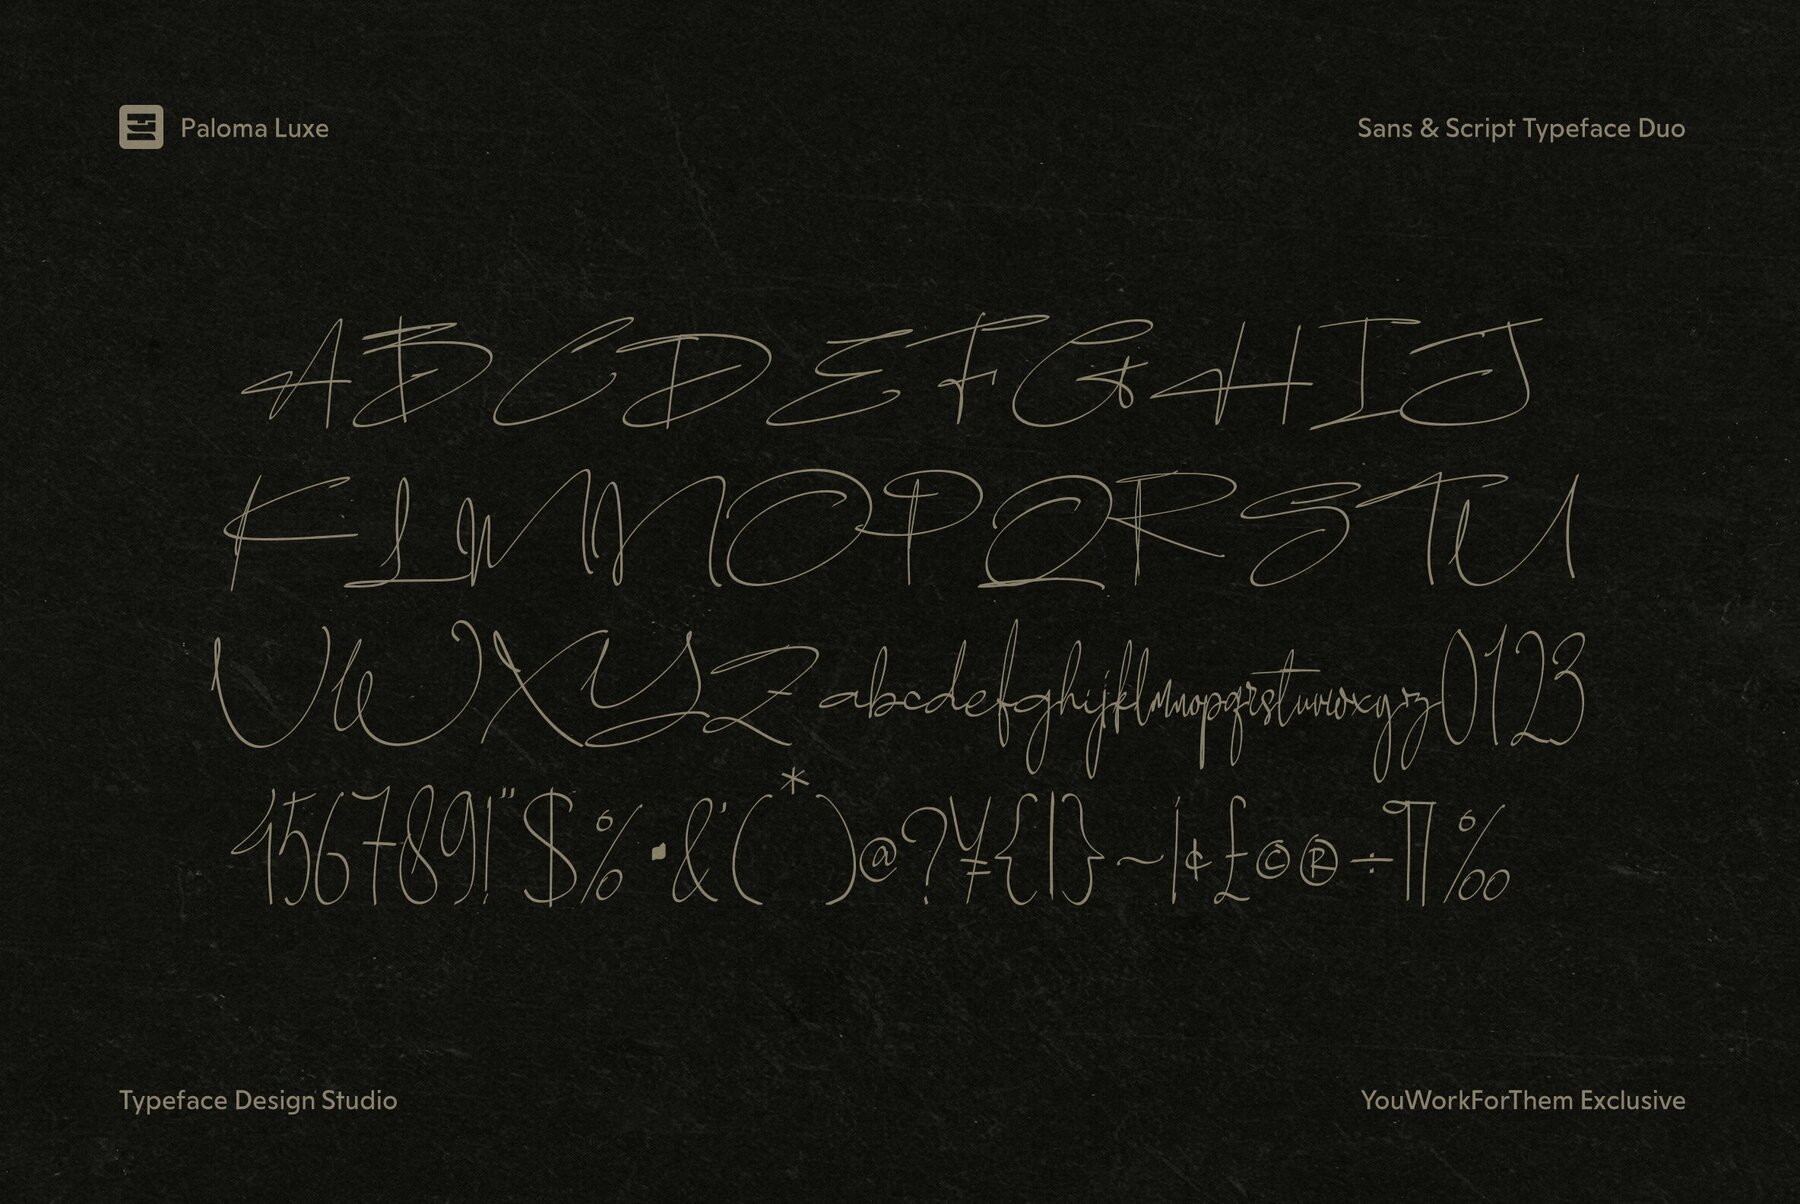 Paloma Luxe
Sans & Script Typeface Duo
ABCDEFGHIJ
KLMNOPQRSTU
VWXYZabcdefghijklmnopqrstuvwxyz0123
456789!"$%·&'(*)@?¥{|}~|¢£©®÷¶‰
Typeface Design Studio
YouWorkForThem Exclusive